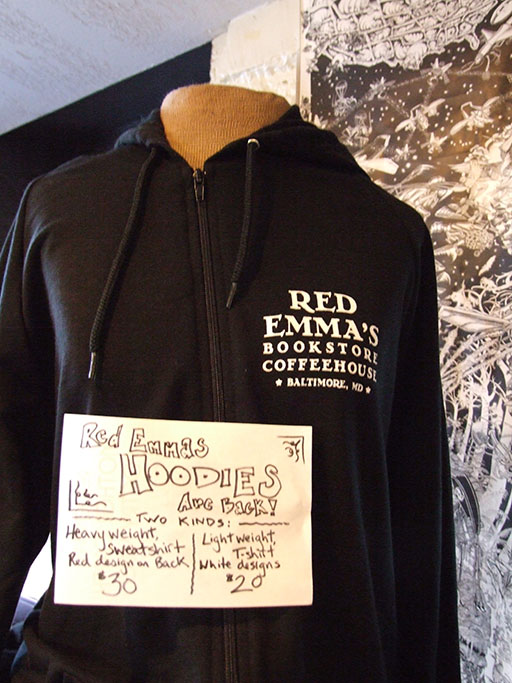 RED
EMMA'S
BOOKSTORE
COFFEEHOUSE
★ BALTIMORE, MD ★
Red Emmas
HOODIES
Are Back!
TWO KINDS:
Heavy weight,
Sweatshirt
Red design on Back
$30
Light weight,
T-shirt
White designs
$20